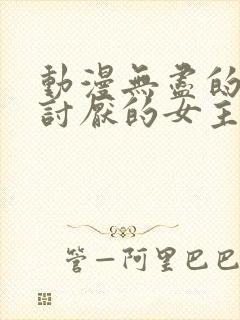 動漫無盡的
討厭的女主
管一阿里巴巴